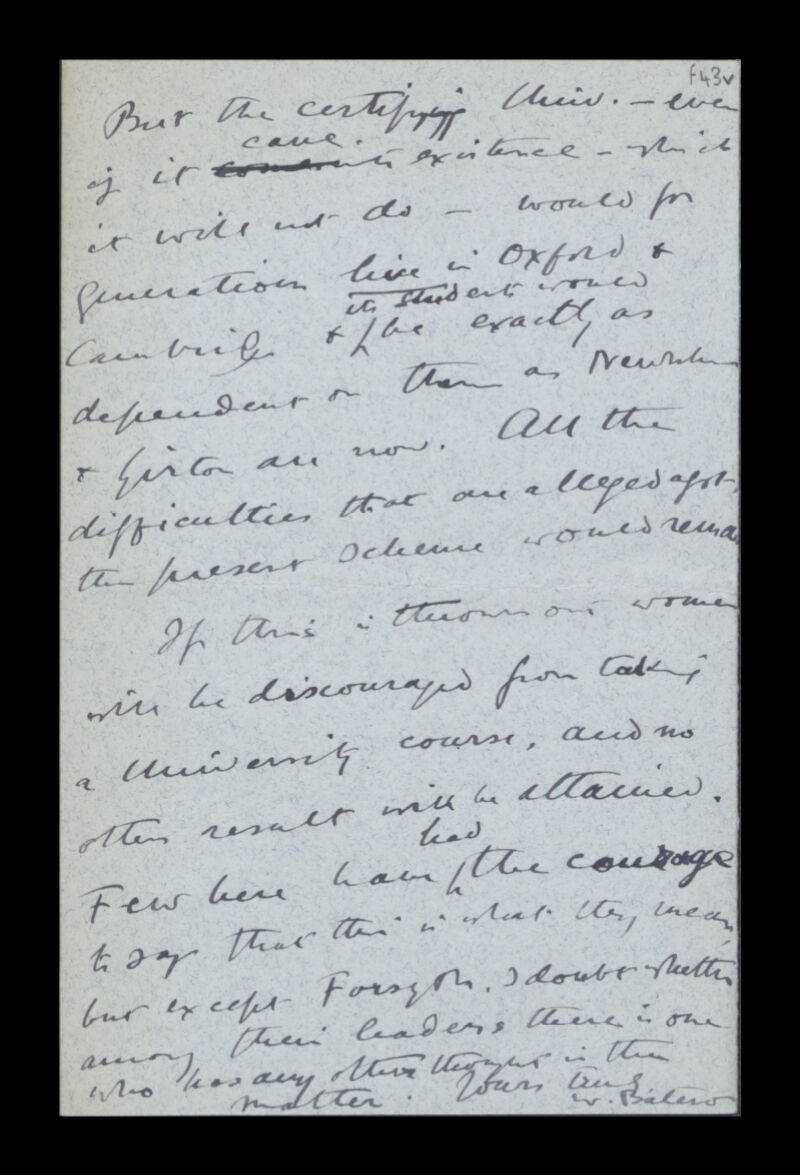 f43v
But the certifying Univ. – even
came
if it into existence – which
it will not do – would for
generations live in Oxford &
its students would
Cambridge & be exactly as
dependent on them as Newnham
& Girton are now. All the
difficulties that are alleged agst.
the present scheme would remain
If this is thrown out women
will be discouraged from taking
a University course, and no
other result will be attained.
had
Few here have the courage
to say that this is what they mean,
but except Forsyth. I doubt whether
among their leaders there is one
who has any other thought in the
matter. Yours truly
W. Bateson